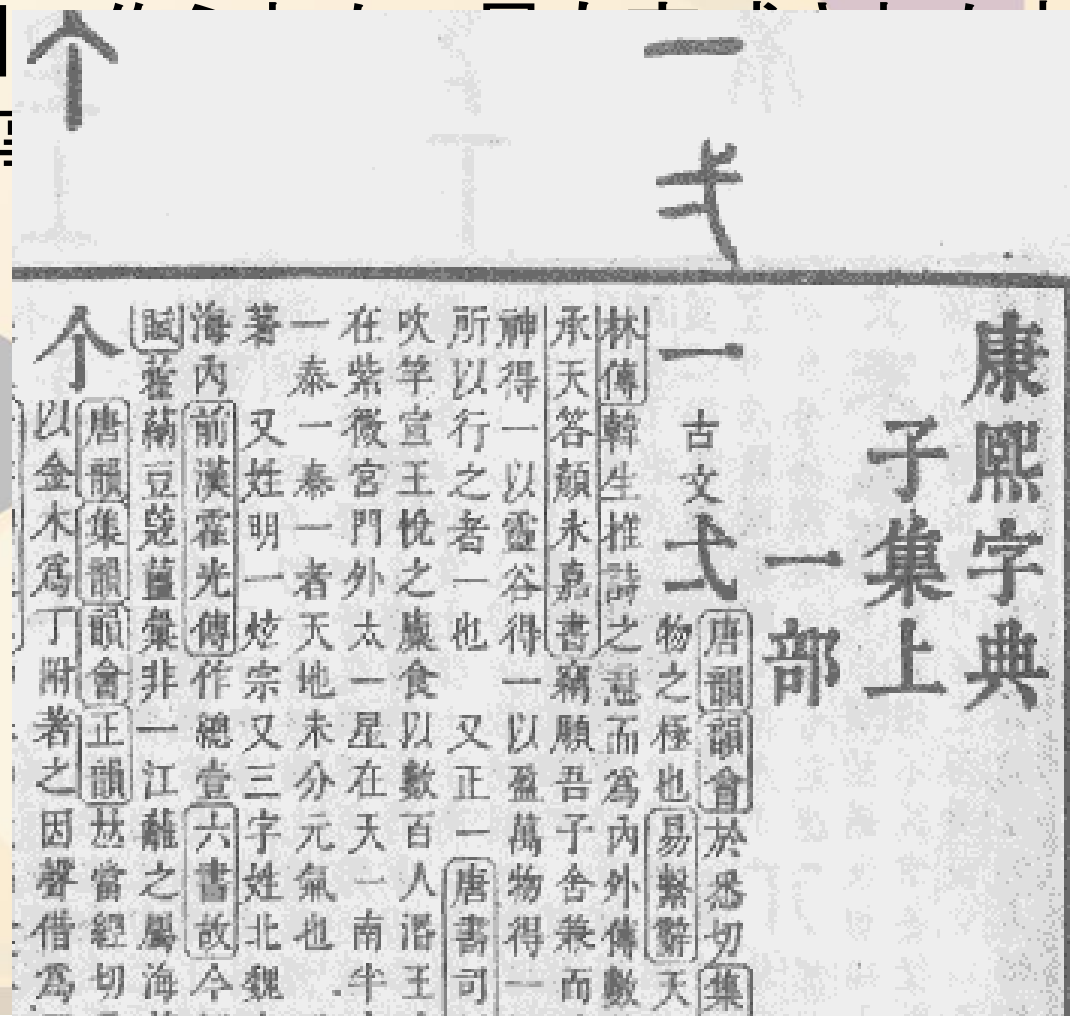 一
弌
个
康熙字典
子集上
一部
一
古文
弌
唐韻韻會於悉切集
物之極也易繫辭天
林傳韓生推詩之意而為內外傳數
承天答顏永嘉書竊願吾子舍兼而
神得一以靈谷得一以盈萬物得一
所以行之者一也 又正一唐書司
吹竽宣王悅之廩食以數百人湣王
在紫微宮門外太一星在天一南半
一泰一泰一者天地未分元氣也
著 又姓明一炫宗又三字姓北魏
海內前漢霍光傳作總壹六書故今
賦藿蒳豆蔻薑彙非一江蘺之屬海
个
唐韻集韻韻會正韻𠀤當經切
以金木為丁附著之因聲借為